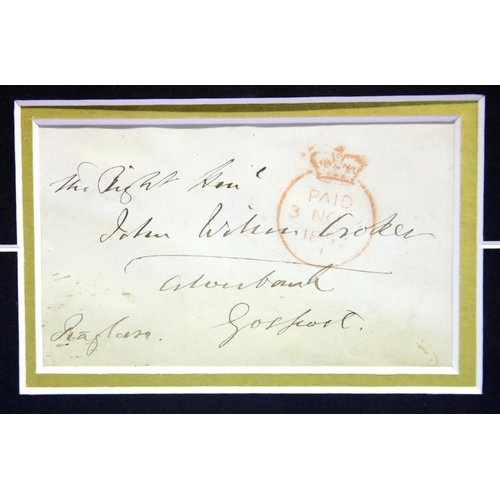 The Right Hon^l
John Wilson Croker
Alverbank
Gosport.
Raglan.
PAID
3 NO
18